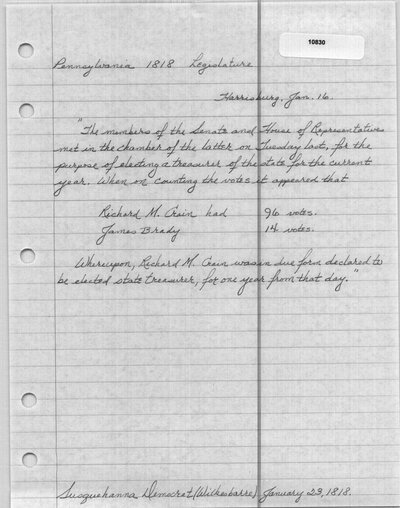 10830
Pennsylvania 1818 Legislature
Harrisburg, Jan. 16.
"The members of the Senate and House of Representatives
met in the chamber of the latter on Tuesday last, for the
purpose of electing a treasurer of the state for the current
year. When on counting the votes it appeared that
Richard M. Crain had 96 votes.
James Brady 14 votes.
Whereupon, Richard M. Crain was in due form declared to
be elected state treasurer, for one year from that day."
Susquehanna Democrat (Wilkesbarre) January 23, 1818.